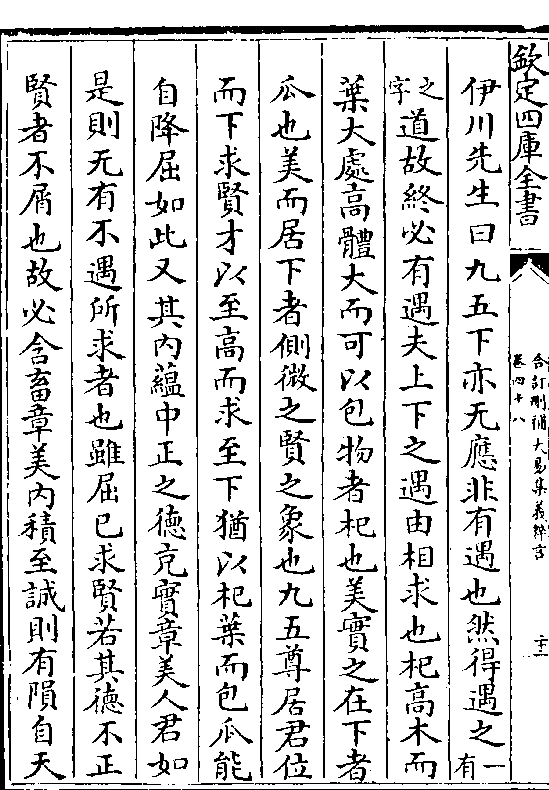 欽定四庫全書
合訂刪補大易集義粹言
卷四十八
伊川先生曰九五下亦无應非有遇也然得遇之一有
之字道故終必有遇夫上下之遇由相求也杞高木而
葉大處高體大而可以包物者杞也美實之在下者
瓜也美而居下者側微之賢之象也九五尊居君位
而下求賢才以至高而求至下猶以杞葉而包瓜能
自降屈如此又其內蘊中正之德充實章美人君如
是則无有不遇所求者也雖屈已求賢若其德不正
賢者不屑也故必含畜章美內積至誠則有隕自天